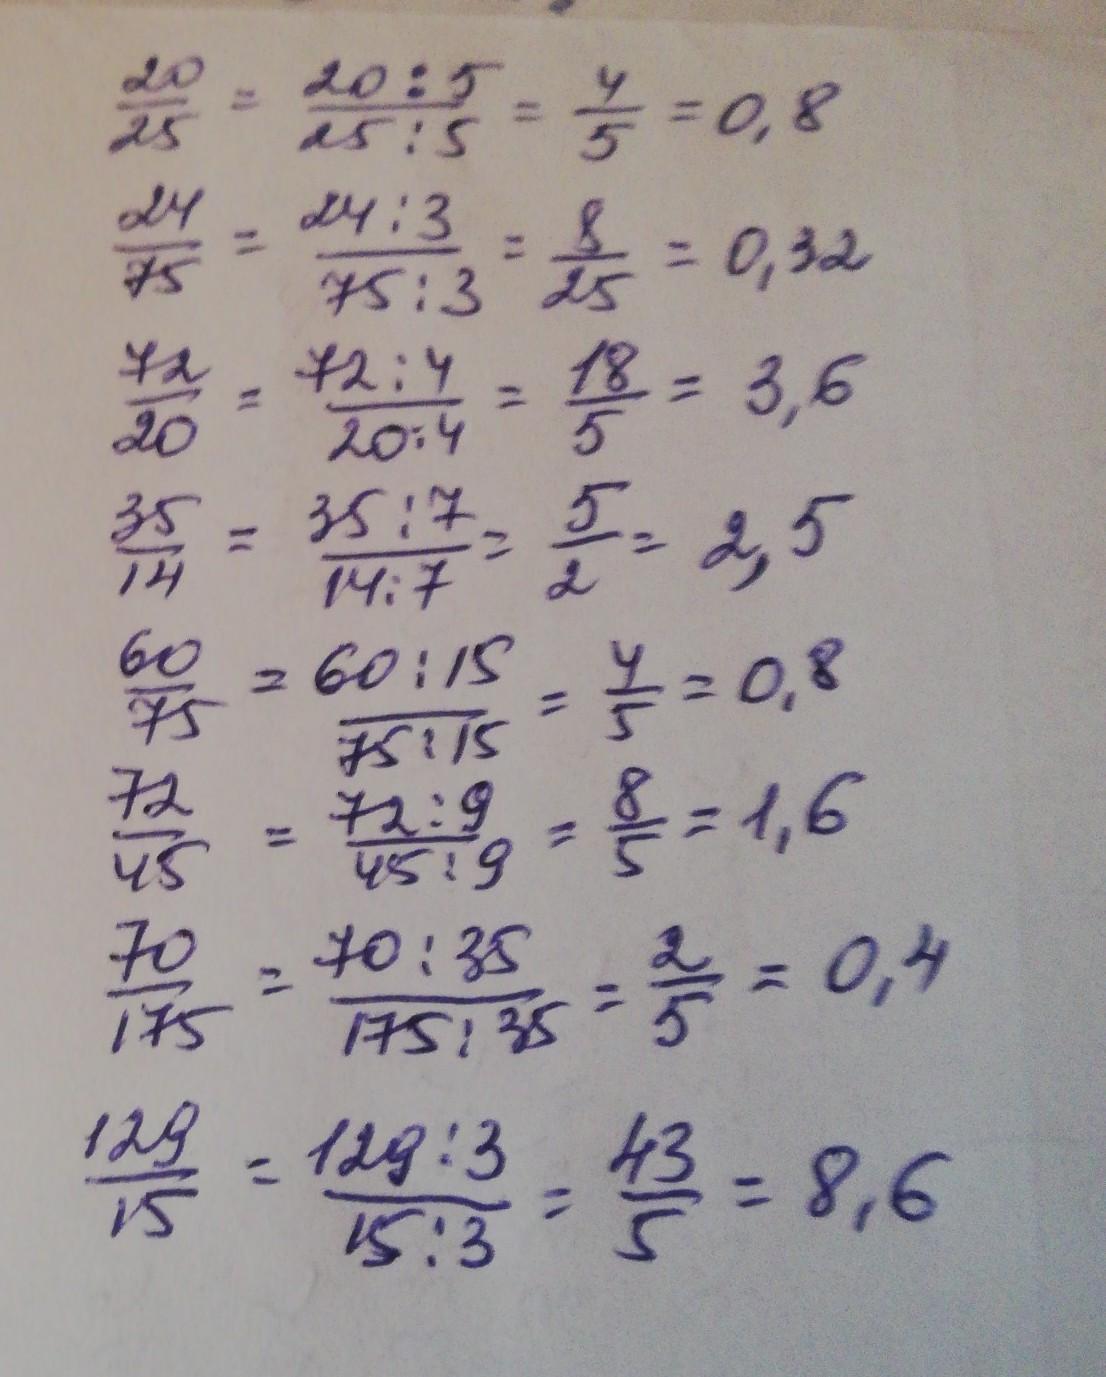 20/25 = 20:5/25:5 = 4/5 = 0,8
24/75 = 24:3/75:3 = 8/25 = 0,32
72/20 = 72:4/20:4 = 18/5 = 3,6
35/14 = 35:7/14:7 = 5/2 = 2,5
60/75 = 60:15/75:15 = 4/5 = 0,8
72/45 = 72:9/45:9 = 8/5 = 1,6
70/175 = 70:35/175:35 = 2/5 = 0,4
129/15 = 129:3/15:3 = 43/5 = 8,6